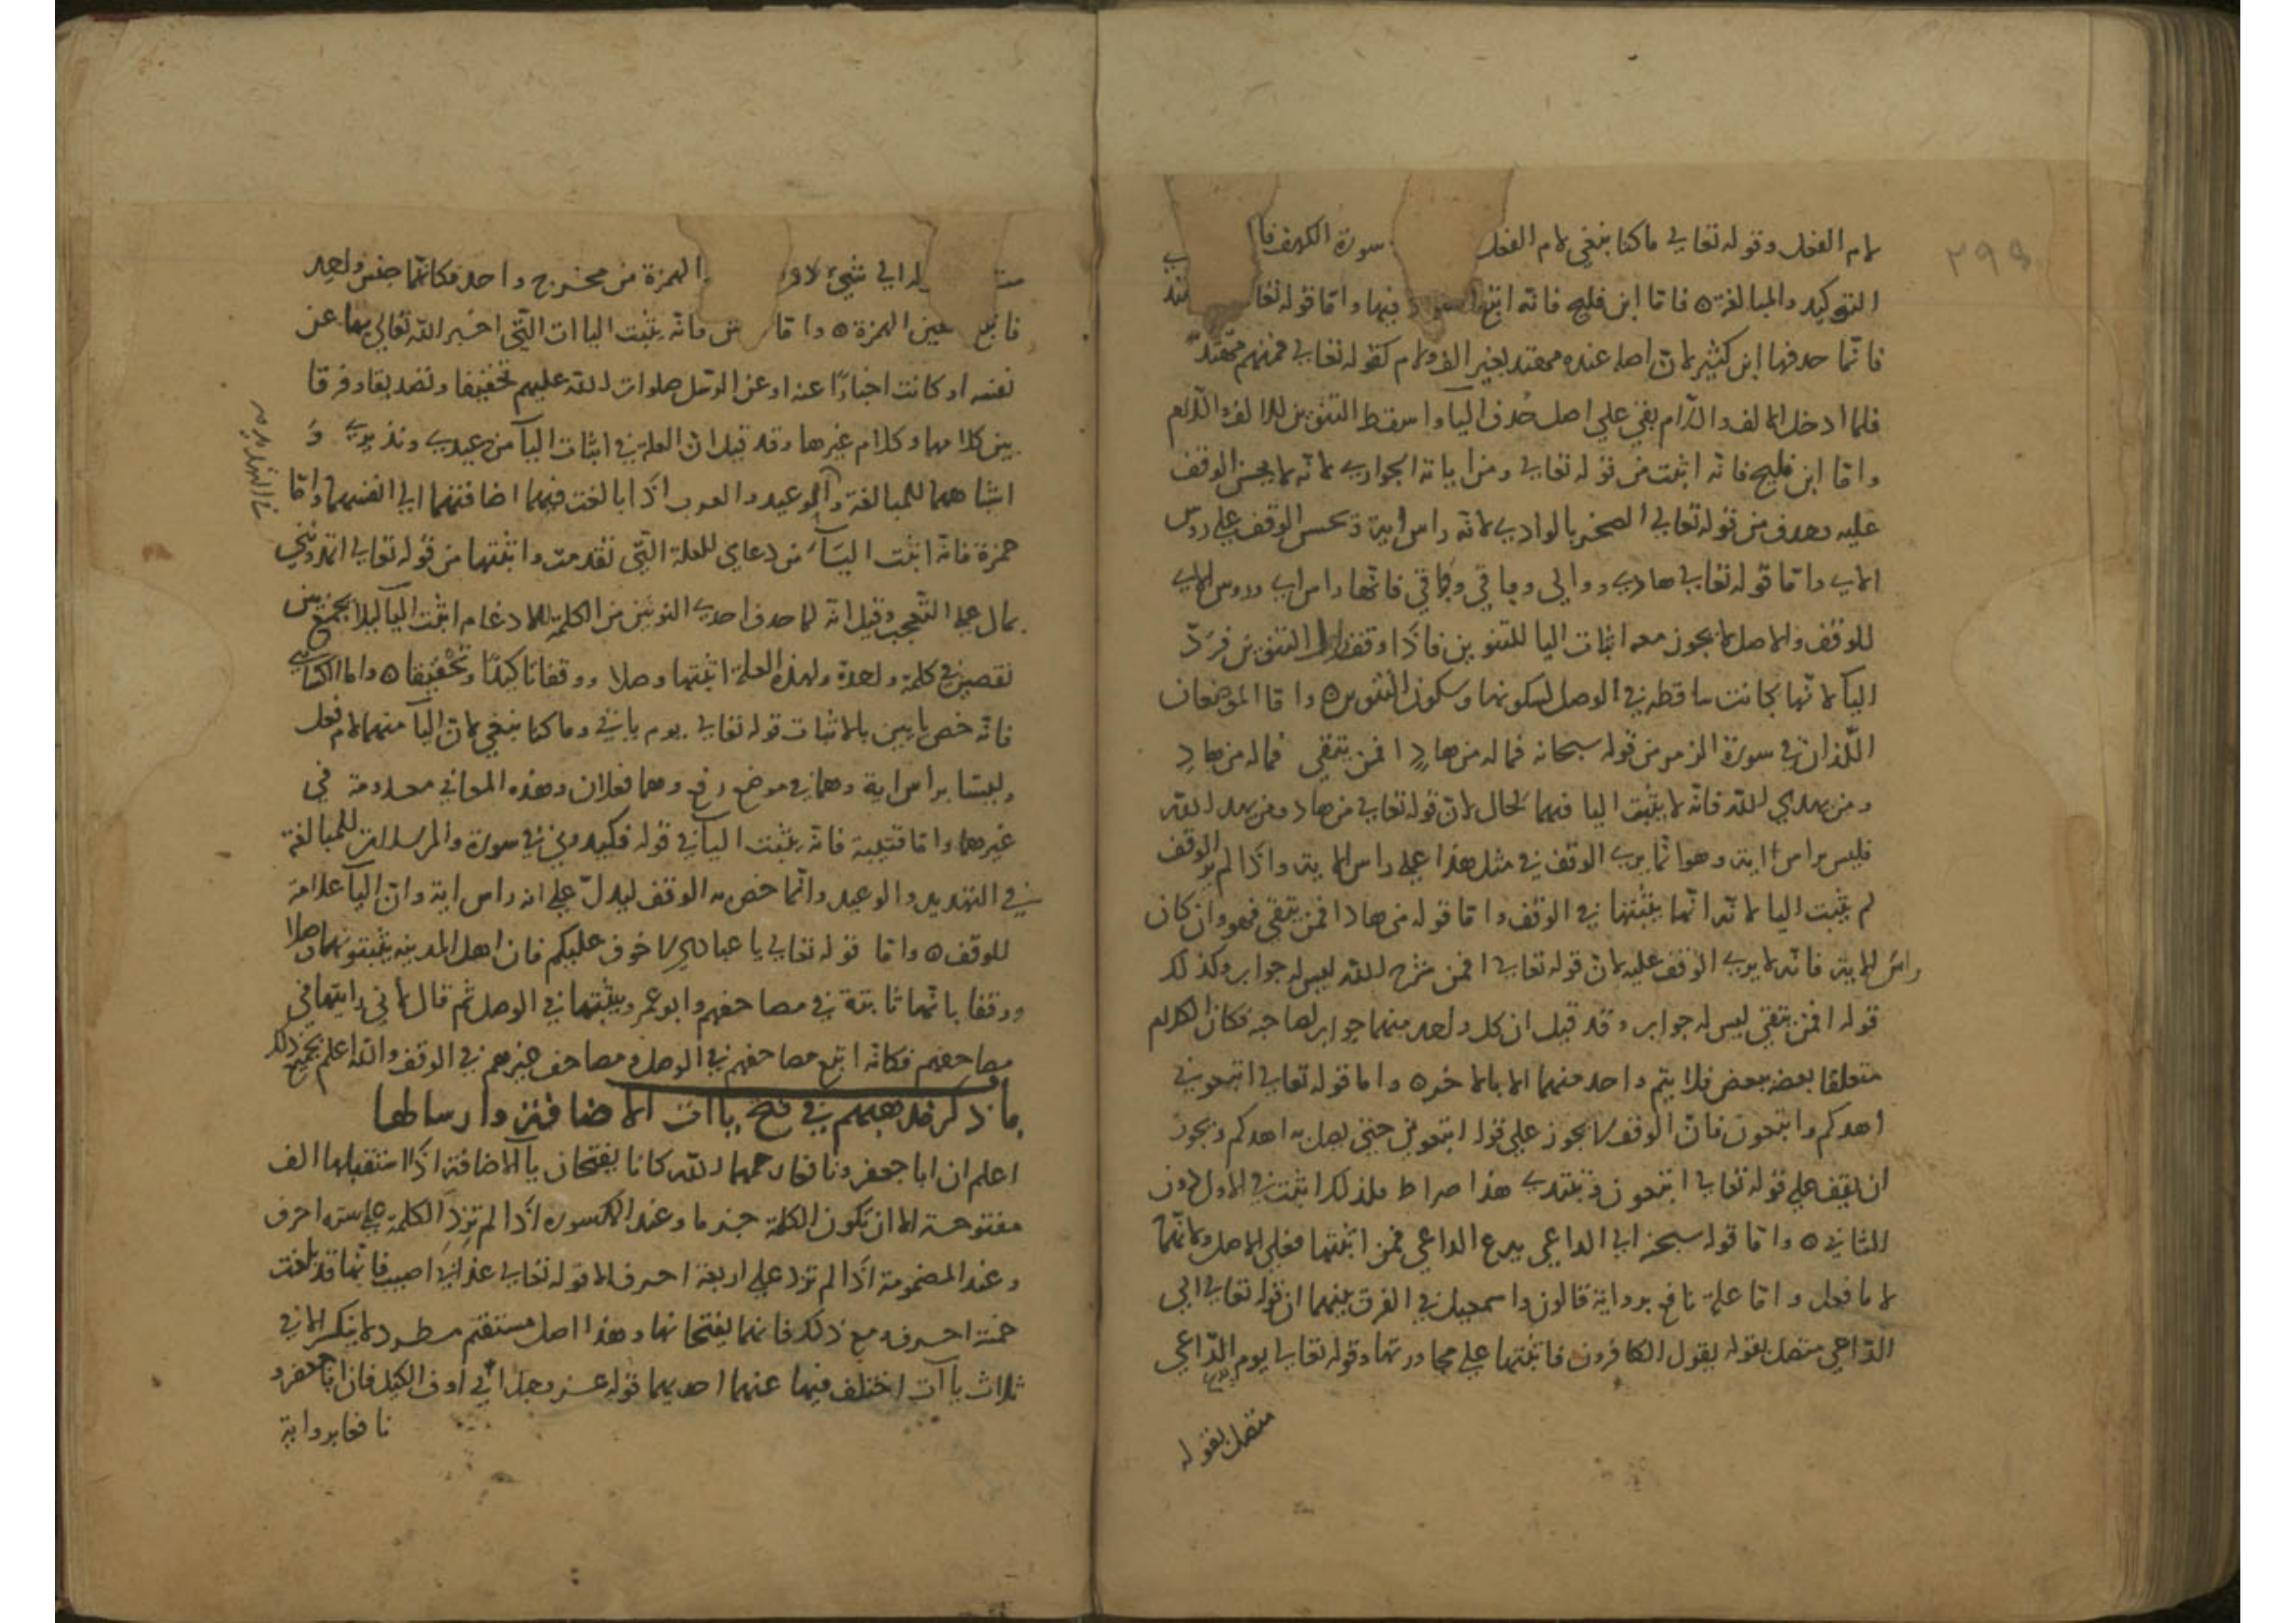 ٢٩٩
لام الفعل وقوله تعالى ما كنا نبغي لام الفعل سورة الكهف فا
التوكيد والمبالغة ٥ فاما ابن فليح فانه اثبتها فيها واما قوله تعا
فانما حذفها ابن كثير لان اصله عنده مهتد بغير الف ولام كقوله تعالى فمنهم مهتد
فلما ادخل الالف واللام بقي على اصل حذف اليا واسقط التنوين للالف واللام
واما ابن فليح فانه اثبت من قوله تعالى ومن اياته الجواري لانه لا يحسن الوقف
عليه وحذف من قوله تعالى الصخر بالوادي لانه راس اية ويحسن الوقف على روس
الاي واما قوله تعالى هادي ووالي وباقي وواقي فانها راس اي وروس الاي
للوقف والاصل لا يجوز معه اثبات اليا للتنوين فاذا وقف زال التنوين فرد
اليا لانها كانت ساقطه في الوصل لسكونها وسكون التنوين ٥ واما الموضعان
اللذان في سورة الزمر من قوله سبحانه فما له من هاد افمن يتقي فما له من هاد
ومن يهدي الله فانه لا يثبت اليا فيهما لحال لان قوله تعالى من هاد ومن يهد الله
فليس براس اية وهو انما يرى الوقف في مثل هذا على راس الاية واذا لم ير الوقف
لم يثبت اليا لانه انما يثبتها في الوقف واما قوله من هاد افمن يتقي فهو وان كان
راس الاية فانه لا يرى الوقف عليه لان قوله تعالى افمن شرح الله ليس له جواب وكذلك
قوله افمن يتقي ليس له جواب وقد قيل ان كل واحد منهما جواب لصاحبه فكان الكلام
متعلقا بعضه ببعض فلا يتم واحد منهما الا بالاخر ٥ واما قوله تعالى اتبعوني
اهدكم واتبعون فان الوقف لا يجوز على قوله اتبعوني حتى يصل به اهدكم ويجوز
ان يقف على قوله تعالى اتبعون ويبتدي هذا صراط فلذلك اثبت في الاول دون
الثاني ٥ واما قوله سبحنه الى الداعي يدع الداعي فمن اثبتها فعلى الاصل ولانها
لاما فعل واما علة نافع برواية قالون واسمعيل في الفرق بينهما ان قوله تعالى الى
الداعي متصل بقوله يقول الكافرون فاثبتها على مجاورتها وقوله تعالى يوم يدع الداعي
متصل بقوله
له الى شيء الهمزة من مخرج واحد فكانما جنس واحد
فاتبع عين الهمزة ٥ واما فانه يثبت الياات التي اخبر الله تعالى بها عن
نفسه او كانت اخبارا عنه او عن الرسل صلوات الله عليهم تخفيفا وتصديقا وفرقا
بين كلامها وكلام غيرها وقد قيل ان العلة في اثبات اليا من وعيدي ونذيري و
اشباههما للمبالغة والوعيد والعرب اذا بالغت فيهما اضافتهما الى انفسهما واما
في التهديد صح
حمزة فانه اثبت الياء من دعاي للعلة التي تقدمت واثبتها من قوله تعالى اتمدونني
بمال على التعجب وقيل انه لما حذف احدى النونين من الكلمة للادغام اثبت اليا ليلا يجمع بين
نقصين في كلمة واحدة ولهذه العلة اثبتها وصلا ووقفا تاكيدا وتخفيفا ٥ واما الكسائي
فانه خص يايين بالاثبات قوله تعالى يوم ياتي وما كنا نبغي لان اليا منهما لام فعل
وليستا براس اية وهما في موضع رفع وهما فعلان وهذه المعاني معدومة في
غيرهما واما قتيبة فانه يثبت اليا في قوله فكيدوني في سورة والمرسلات للمبالغة
في التهديد والوعيد وانما خص به الوقف ليدل على انه راس اية وان اليا علامة
للوقف ٥ واما قوله تعالى يا عبادي لا خوف عليكم فان اهل المدينه يثبتونها وصلا
ووقفا بانها ثابتة في مصاحفهم وابو عمرو يثبتها في الوصل ثم قال لاني رايتها في
مصاحفهم فكانه اتبع مصاحفهم في الوصل ومصاحف غيرهم في الوقف والله اعلم بجميع ذلك
ما ذكر مذهبهم في فتح ياات الاضافة وارسالها
اعلم ان ابا جعفر ونافعا رحمهما الله كانا يفتحان يا الاضافة اذا استقبلها الف
مفتوحة الا ان تكون الكلمة جزما وعند المكسورة اذا لم تزد الكلمة على ستة احرف
وعند المضمومة اذا لم تزد على اربعة احرف الا قوله تعالى عذابي اصيب فانها قد بلغت
خمسة احرف ومع ذلك فانهما يفتحانها وهذا اصل مستقيم مطرد لا ينكسر الا في
ثلاث ياآت اختلف فيها عنهما احديهما قوله عز وجل اني اوف الكيل فان ابا جعفر و
نافعا برواية